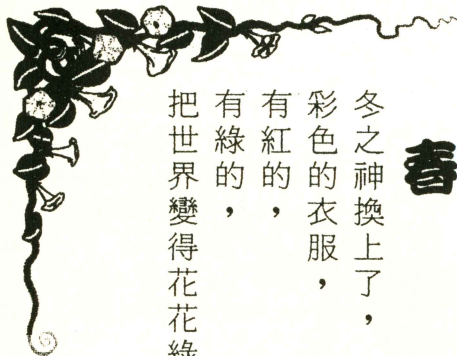 春
冬之神換上了，
彩色的衣服，
有紅的，
有綠的，
把世界變得花花綠